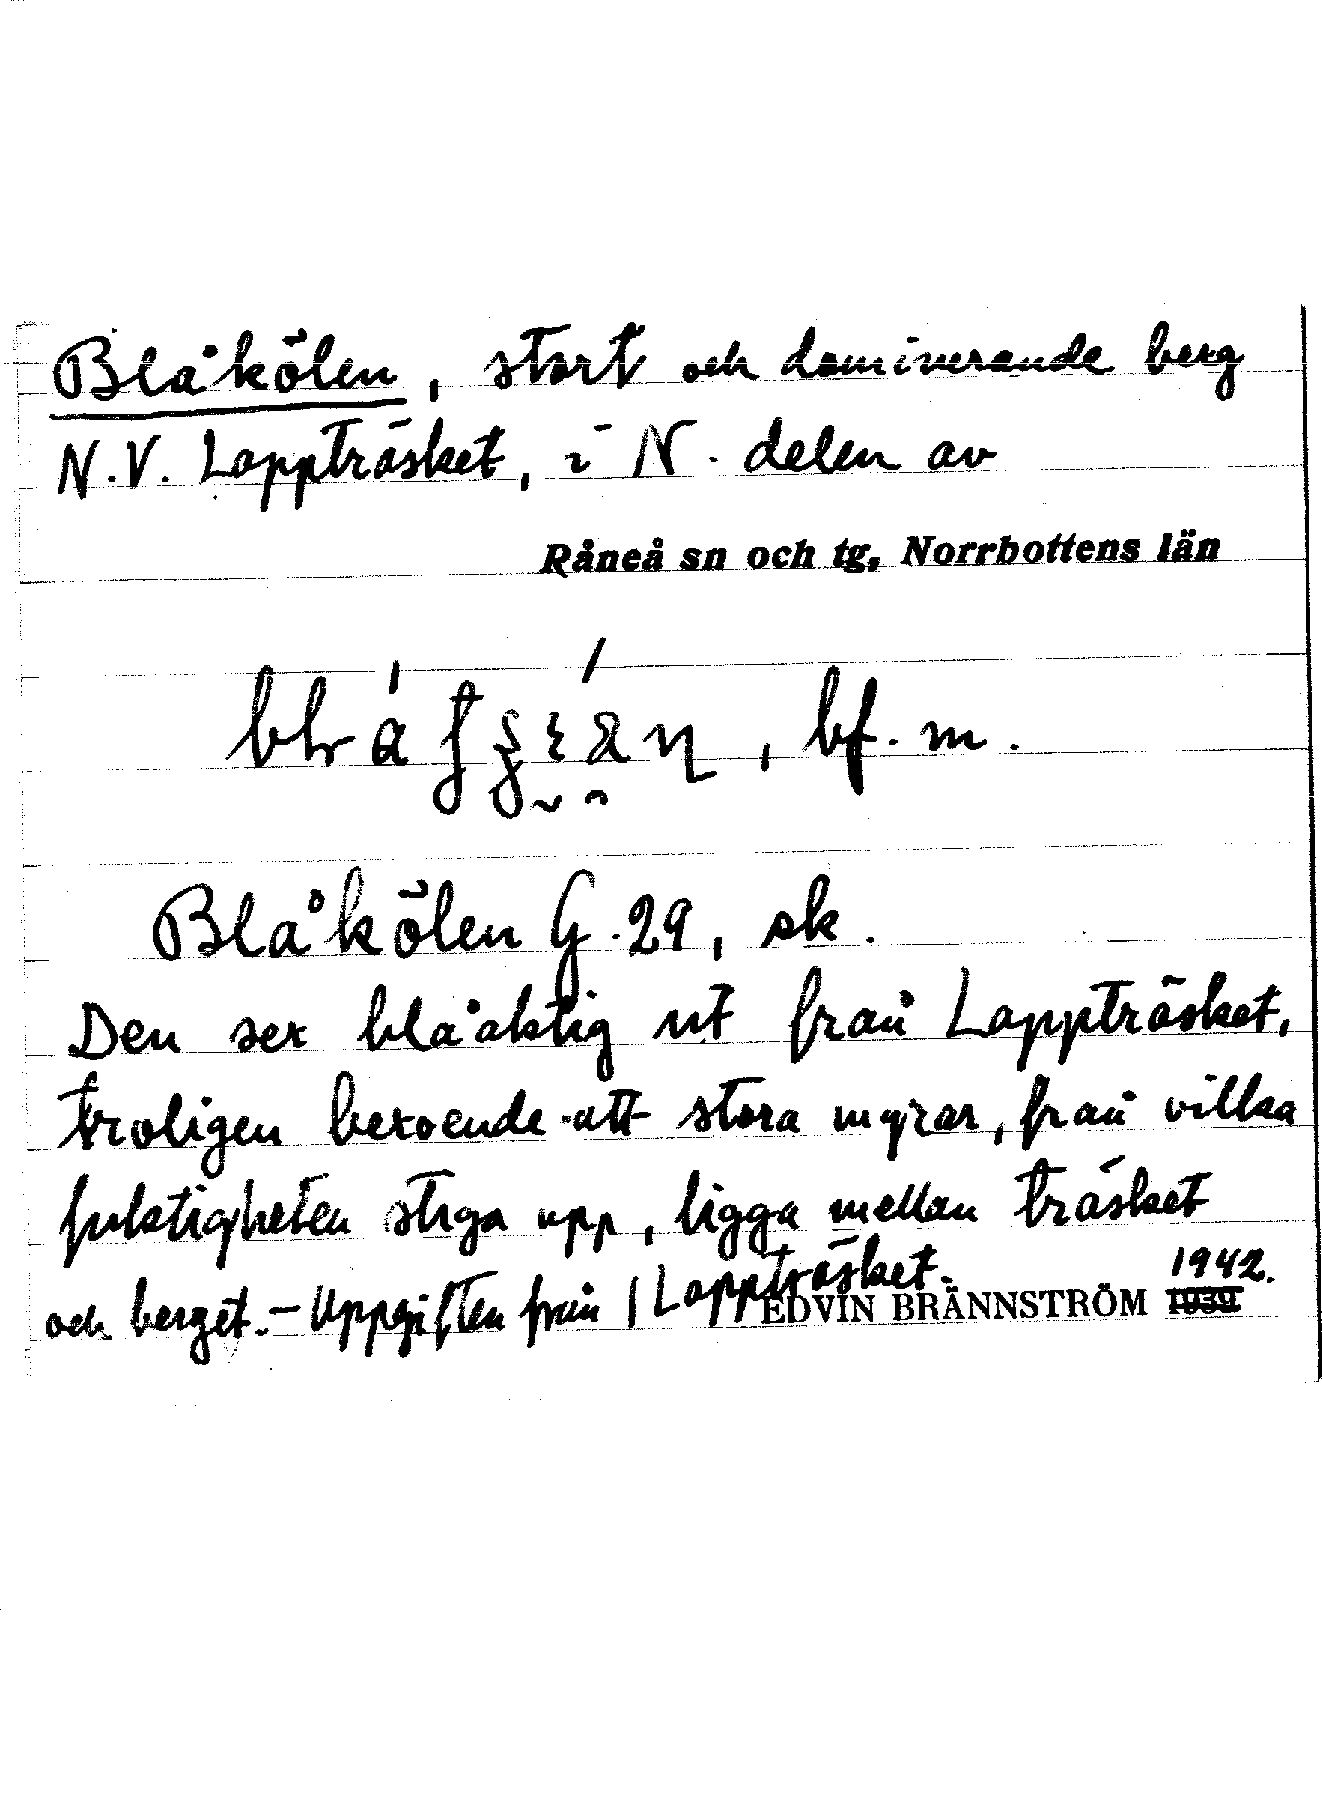 Blåkölen, stort och dominerande berg
N.V. Lappträsket, i N. delen av
Råneå sn och tg, Norrbottens län
, bf. m.
Blåkölen G. 29, sk.
Den ser blåaktig ut från Lappträsket,
troligen beroende att stora myrar, från vilka
fuktigheten stiga upp, ligga mellan träsket
och berget. – Uppgiften från Lappträsket.
EDVIN BRÄNNSTRÖM 1939 1942.